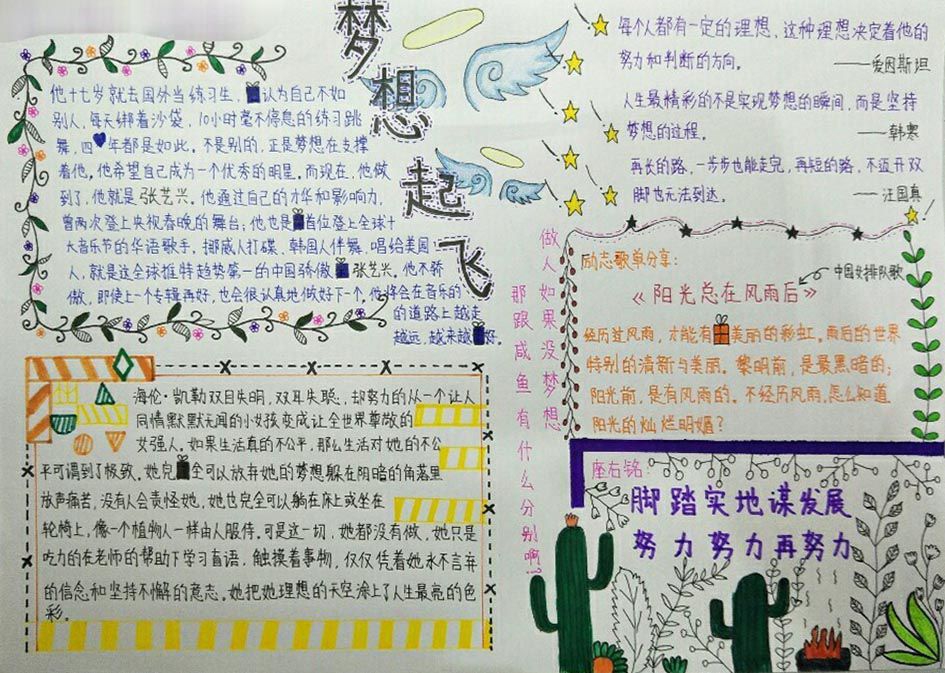 梦想起飞
他十七岁就去国外当练习生，认为自己不如
别人，每天绑着沙袋，10小时毫不停息的练习跳
舞，四年都是如此。不是别的，正是梦想在支撑
着他。他希望自己成为一个优秀的明星。而现在，他做
到了，他就是张艺兴。他通过自己的才华和影响力，
曾两次登上央视春晚的舞台；他也是首位登上全球十
大音乐节的华语歌手，挪威人打碟，韩国人伴舞，唱给美国
人，就是这全球推特趋势第一的中国骄傲张艺兴。他不骄
傲，即使上一个专辑再好，也会很认真地做好下一个，他将会在音乐的
的道路上越走
越远，越来越好。
海伦·凯勒双目失明，双耳失聪，却努力的从一个让人
同情默默无闻的小女孩变成让全世界尊敬的
女强人。如果生活真的不公平，那么生活对她的不公
平可谓到了极致。她完全可以放弃她的梦想躲在阴暗的角落里
放声痛苦，没有人会责怪她，她也完全可以躺在床上或坐在
轮椅上，像一个植物人一样由人服侍。可是这一切，她都没有做，她只是
吃力的在老师的帮助下学习盲语，触摸着事物，仅仅凭着她永不言弃
的信念和坚持不懈的意志。她把她理想的天空涂上了人生最亮的色
彩。
每个人都有一定的理想，这种理想决定着他的
努力和判断的方向。
——爱因斯坦
人生最精彩的不是实现梦想的瞬间，而是坚持
梦想的过程。
——韩寒
再长的路，一步步也能走完，再短的路，不迈开双
脚也无法到达。
——汪国真
做人如果没梦想
那跟咸鱼有什么分别啊！
励志歌单分享：
中国女排队歌
《阳光总在风雨后》
经历过风雨，才能有美丽的彩虹。雨后的世界
特别的清新与美丽。黎明前，是最黑暗的；
阳光前，是有风雨的。不经历风雨，怎么知道
阳光的灿烂明媚？
座右铭
脚踏实地谋发展
努力努力再努力